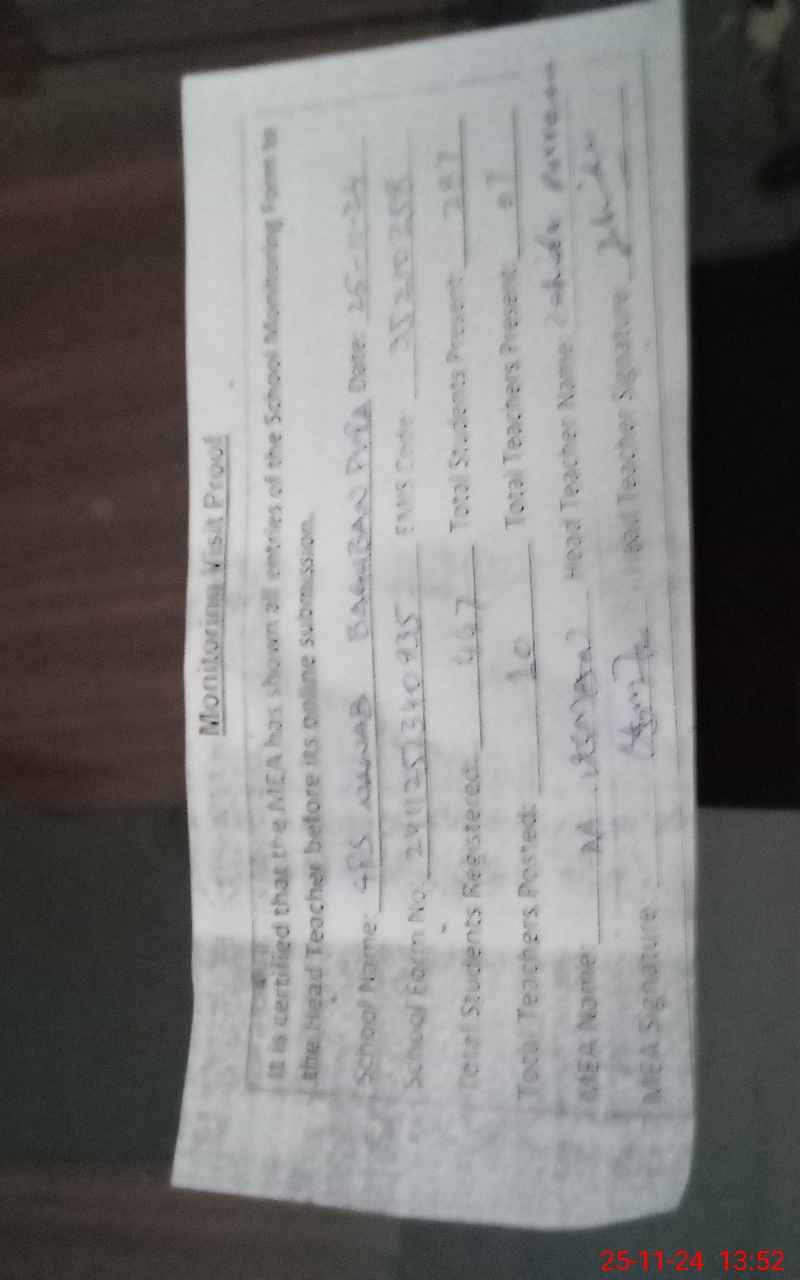 Monitoring Visit Proof
It is certified that the MEA has shown all entries of the School Monitoring Form to
the Head Teacher before its online submission.
School Name: GPS NAWAB BAGHBAN PURA Date: 25-11-24
School Form No: 241125/240935 EMIS Code: 35210258
Total Students Registered: 447 Total Students Present: 287
Total Teachers Posted: 10 Total Teachers Present: 07
MEA Name: M. Head Teacher Name:
MEA Signature: Head Teacher Signature:
25-11-24 13:52